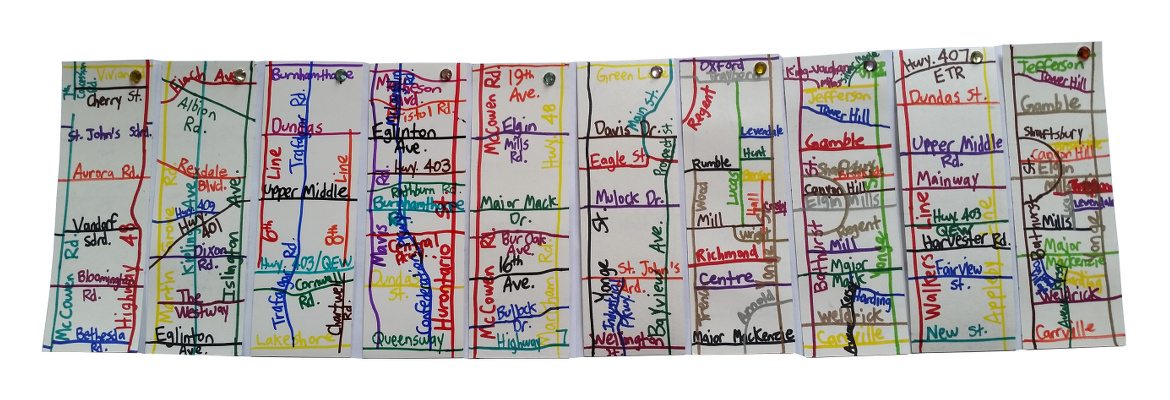 Vivian
Cherry St.
St. John's Sdrd.
Aurora Rd.
Vandorf
Sdrd.
Bloomington
Rd.
Bethesda
Rd.
McCowen Rd
Highway 48
Finch Ave
Albion
Rd.
Rexdale
Blvd.
Hwy 409
Hwy. 401
Dixon
Rd.
The
Westway
Eglinton
Ave.
Martin Grove Rd
Kipling Ave
Islington Ave
Burnhamthorpe
Dundas
Upper Middle
Hwy. 403/QEW
Cornwall
Rd.
Lakeshore
6th Line
Trafalgar Rd.
Trafalgar Rd
8th Line
Chartwell
Rd.
Matheson
Blvd.
Bristol Rd.
Eglinton
Ave.
Hwy. 403
Rathburn Rd.
Burnhamthorpe
Central
Dundas
St.
Queensway
Mavis Rd.
Confederation
Hurontario St
19th
Ave.
Elgin
Mills
Rd.
Major Mack
Dr.
Bur Oak
Ave
16th
Ave.
Bullock
Dr.
Highway 7
McCowen Rd
McCowen Rd.
Hwy. 48
Markham Rd.
Green Lane
Davis Dr.
Eagle St
Mulock Dr.
St. John's
Srd.
Wellington
St
Yonge St.
Main St.
Prospect St
Bayview Ave.
Industrial
Pkwy.
Oxford
Regent
Levendale
Hunt
Rumble
Mill
Wright
Richmond
Centre
Arnold
Major Mackenzie
Lucas
Hall
Yonge
King-Vaughan
Jefferson
Tower Hill
Gamble
Shaftsbury
Canyon Hill
Elgin Mills
Regent
Mill
Major
Mack
Harding
Weldrick
Carrville
Bathurst St
Yonge St
Hwy. 407
ETR
Dundas St.
Upper Middle
Rd.
Mainway
Hwy. 403
QEW
Harvester Rd.
Fairview
St.
New St.
Walkers Line
Appleby Line
Jefferson
Tower Hill
Gamble
Shaftsbury
Canyon Hill
Elgin
Mills
Levendale
Major
Mackenzie
Weldrick
Carrville
Bathurst St
Yonge